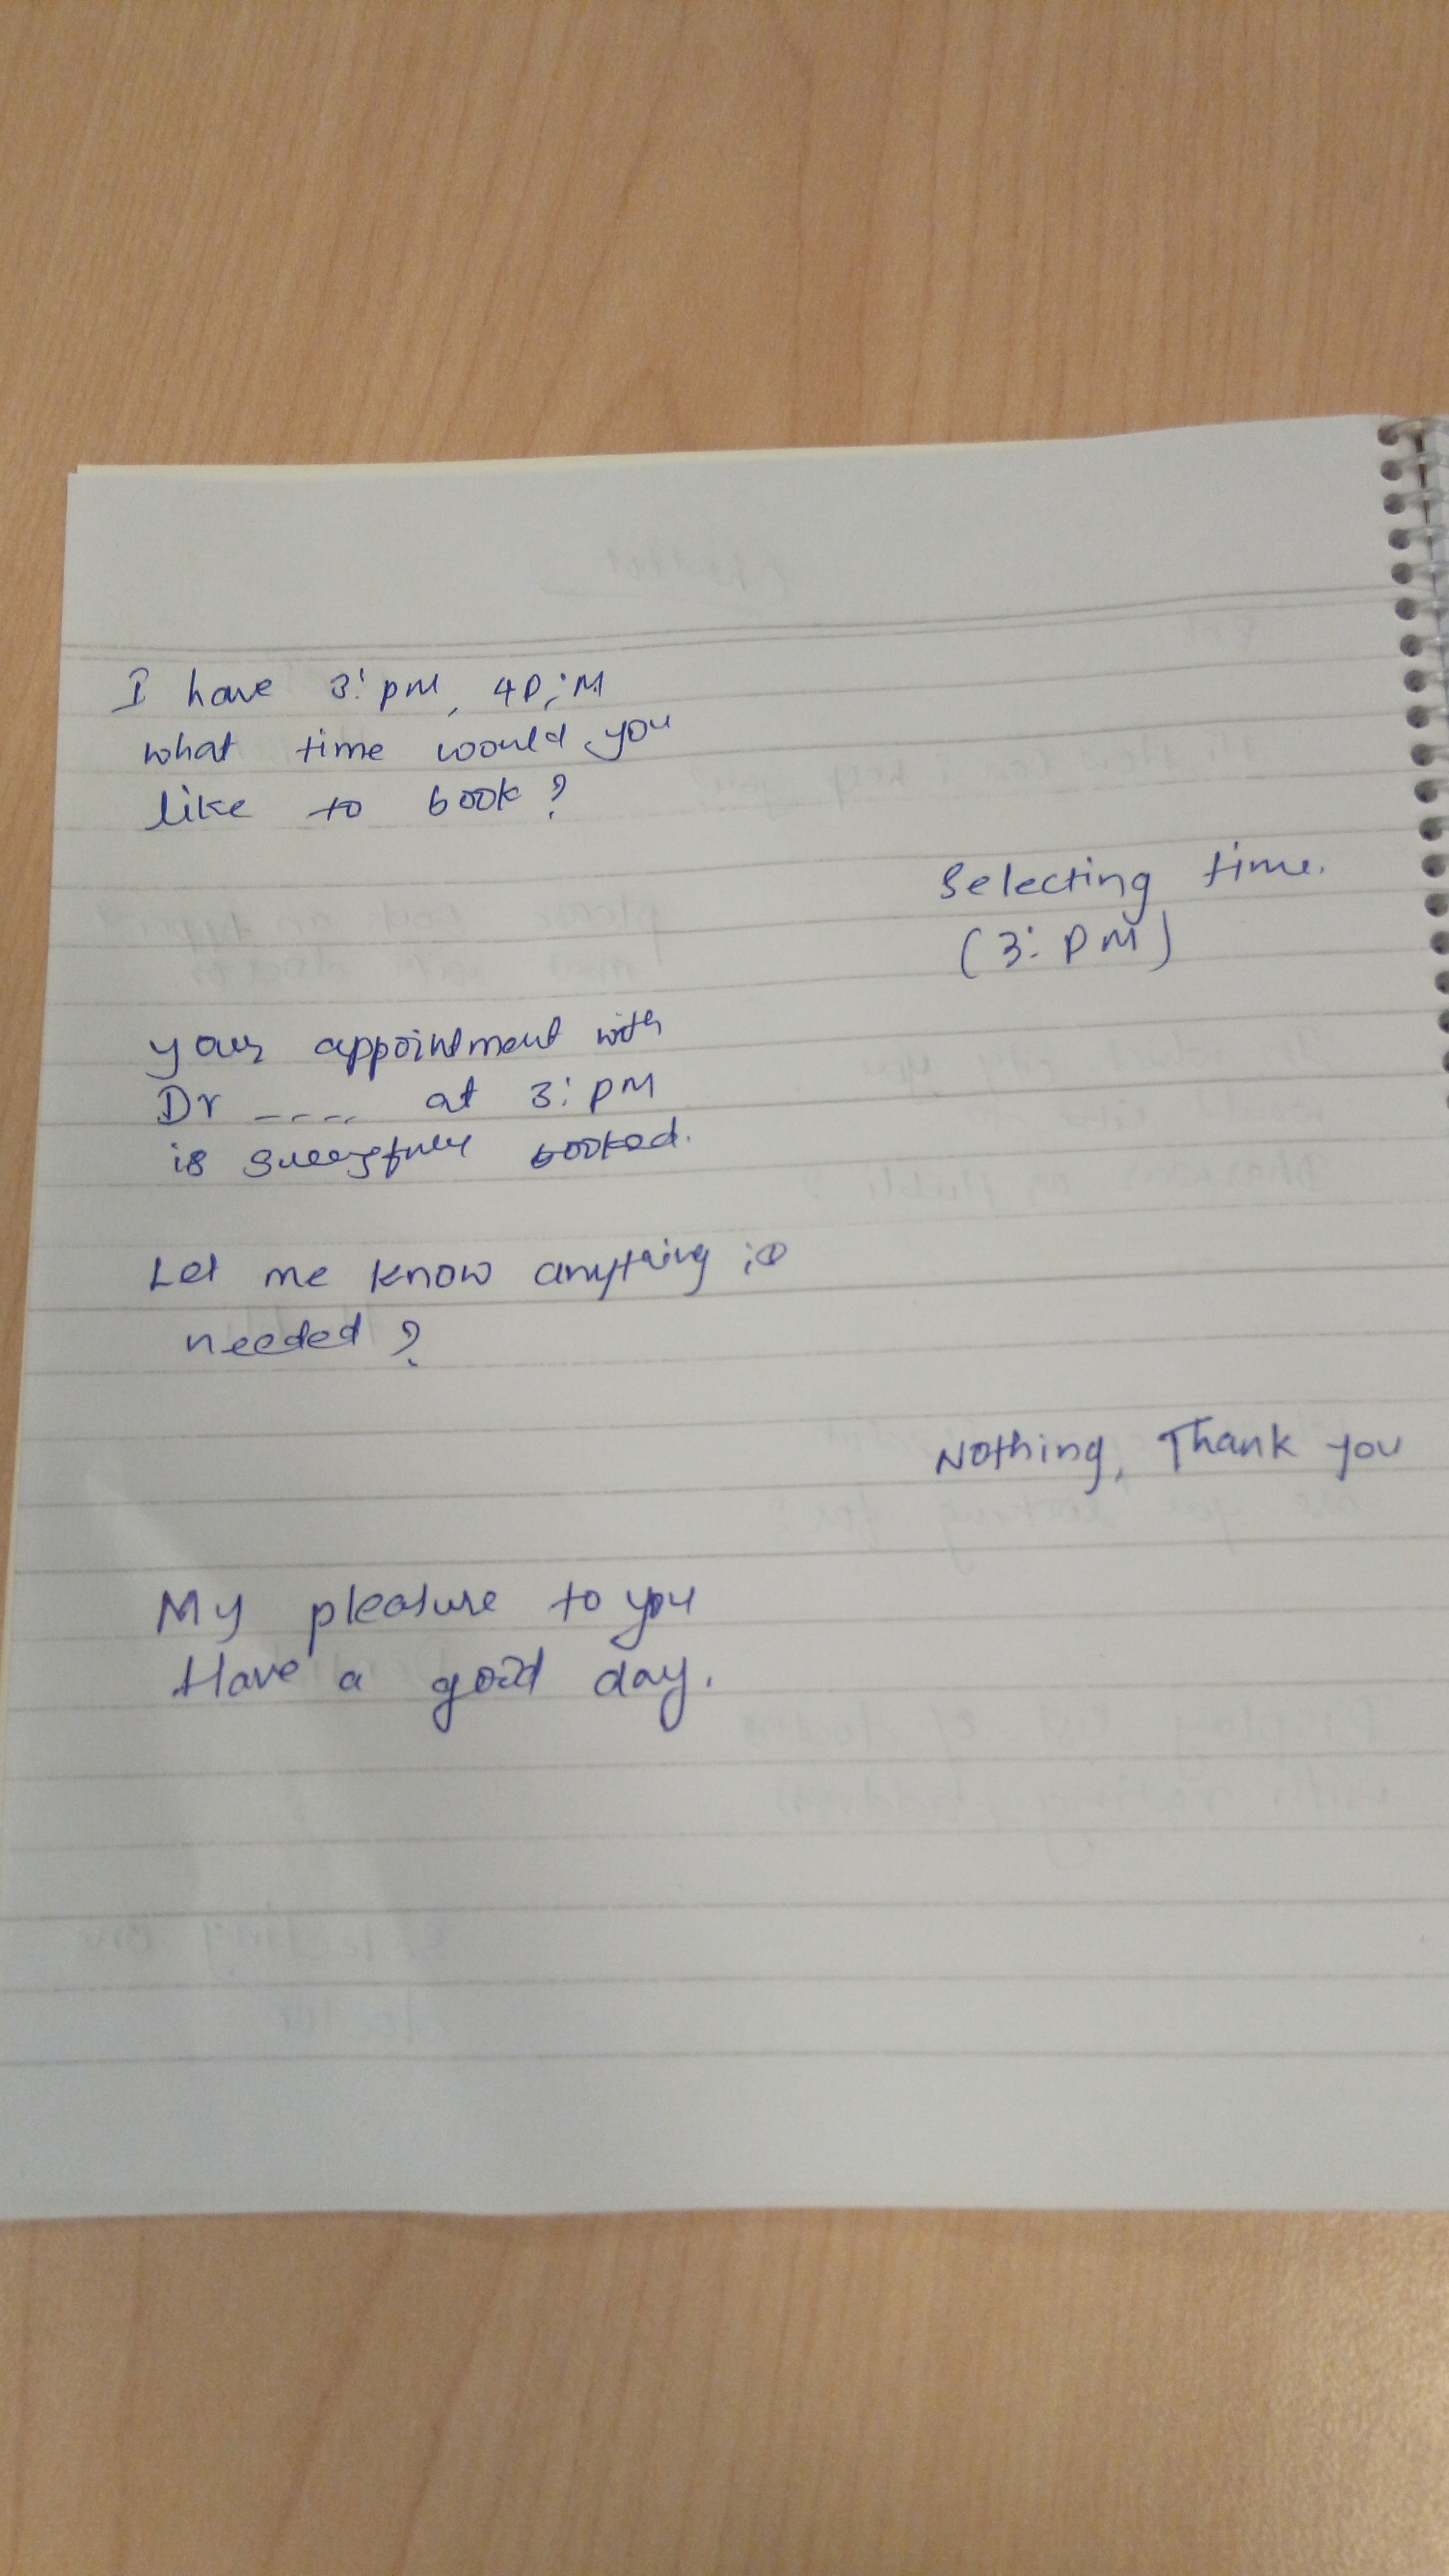 I have 3: pm, 4P;M
what time would you
like to book?
Selecting time.
(3: PM)
your appointment with
Dr ---- at 3: PM
is booked.
Let me know anything is
needed?
Nothing, Thank you
My pleasure to you
Have a good day.